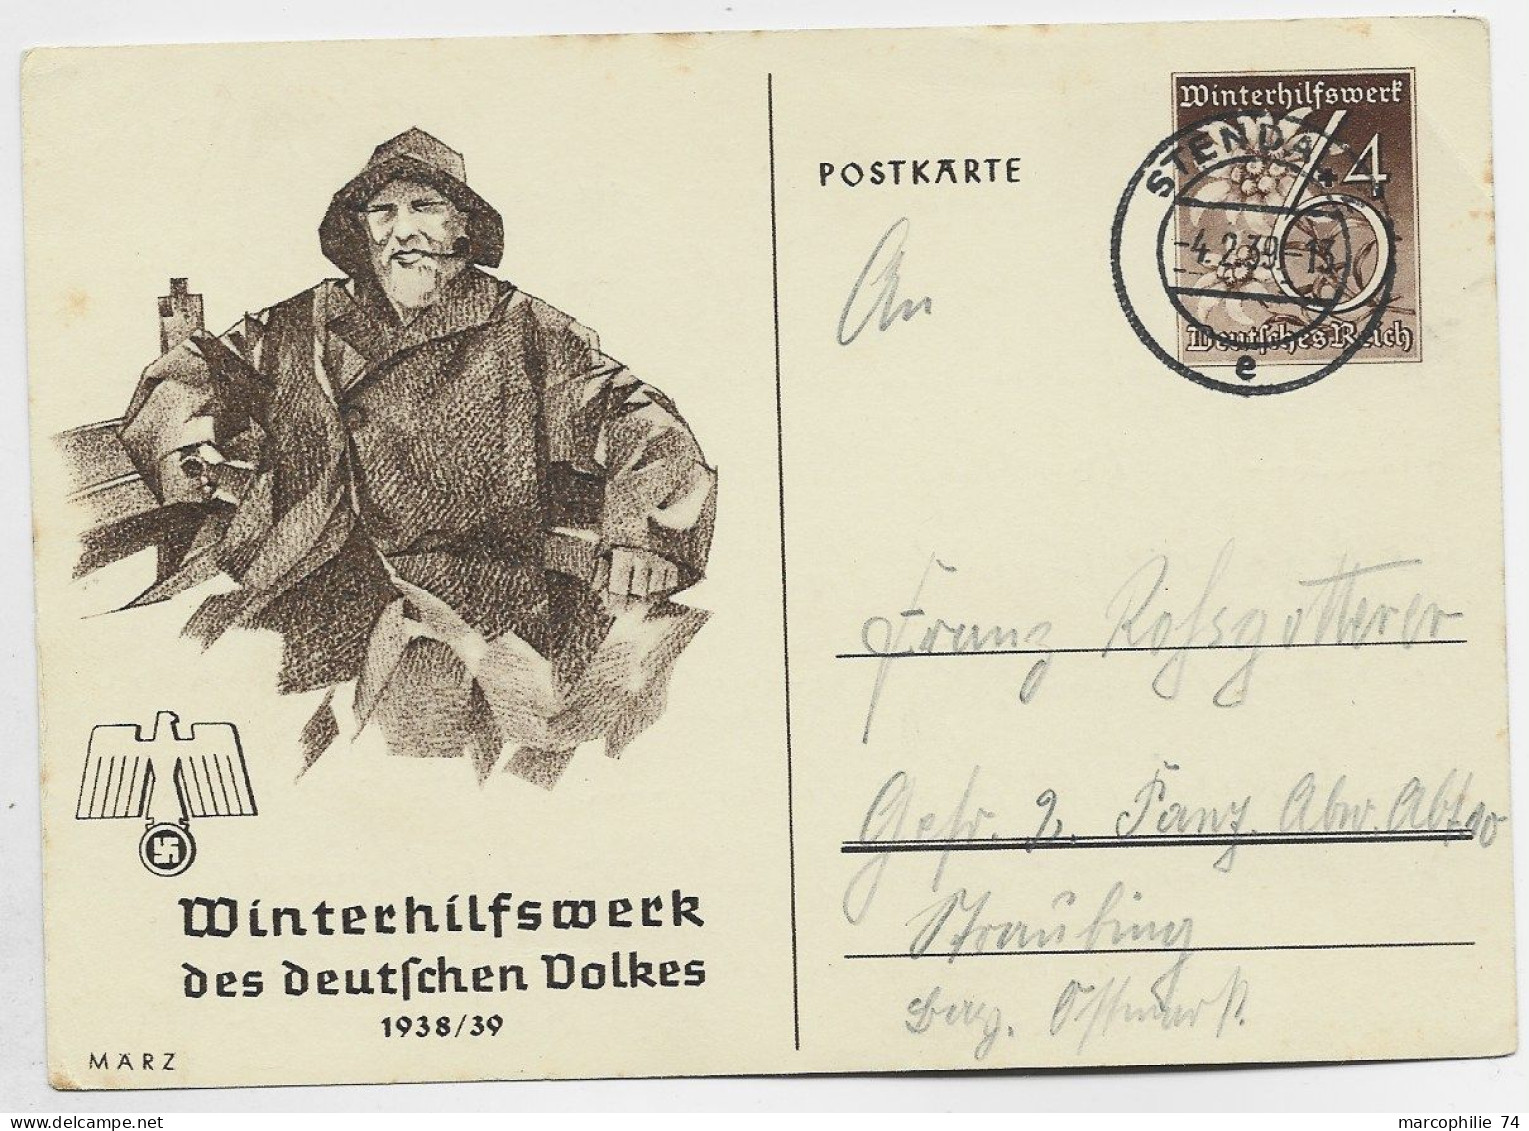 POSTKARTE
Winterhilfswerk
6+4
Deutsches Reich
STENDAL
-4.2.39.-13
e
An
Franz Roßgotterer
Gefr. 2. Panz. Abw. Abt. 10
Straubing
Bay. Ostmark.
Winterhilfswerk
des deutschen Volkes
1938/39
MÄRZ
marcophilie 74